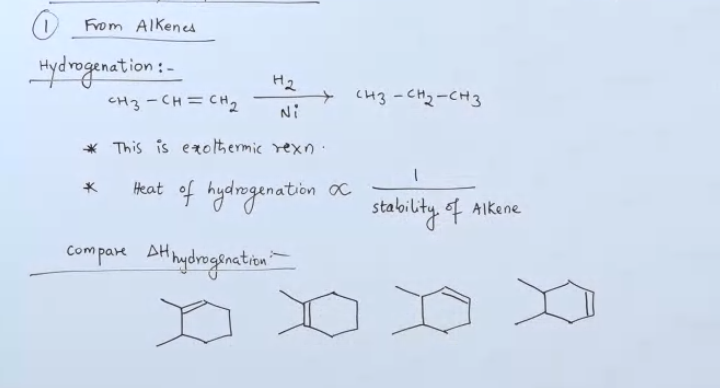 1 From Alkenes
Hydrogenation :-
CH3 - CH = CH2 H2 Ni → CH3 - CH2 - CH3
* This is exothermic rexn.
* Heat of hydrogenation ∝ 1 / stability of Alkene
Compare ΔH hydrogenation :-